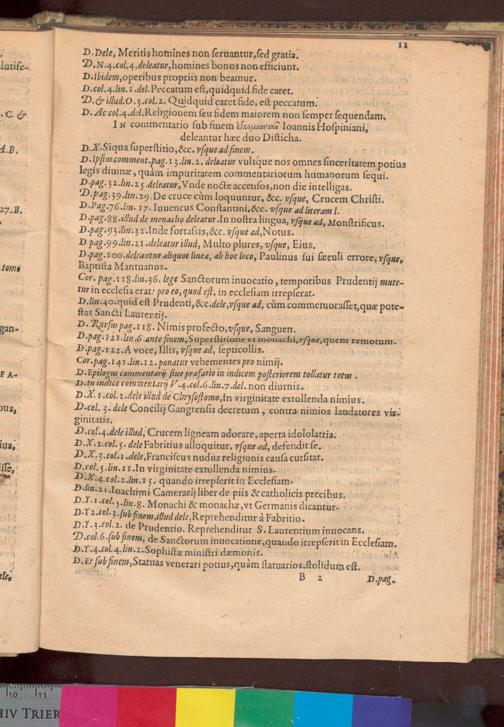 11
D. Dele, Meritis homines non seruantur, sed gratia.
D. N. 4. col. 4. deleatur, homines bonos non efficiunt.
D. Ibidem, operibus propriis non beamur.
D. col. 4. lin. 1. del. Peccatum est, quidquid fide caret.
D. & illud. O. 3. col. 2. Quidquid caret fide, est peccatum.
D. Ac col. 4. del. Religionem seu fidem maiorem non semper sequendam.
IN commentario sub finem Ioannis Hospiniani,
deleantur hæc duo Disticha.
D. X. Siqua superstitio, &c. vsque ad finem.
D. Ipsius comment. pag. 13. lin. 2. deleatur vultque nos omnes sinceritatem potius
legis diuinæ, quàm impuritatem commentariorum humanorum sequi.
D. pag. 32. lin. 25. deleatur, Vnde nocte accensos, non die intelligas.
D. pag. 39. lin. 29. De cruce cùm loquuntur, &c. vsque, Crucem Christi.
D. Pag. 76. lin. 17. Iuuencus Constantini, &c. vsque ad literam l.
D. pag. 88. illud de monacho deleatur. In nostra lingua, vsque ad, Monstrificus.
D. pag. 93. lin. 32. Inde fortassis, &c. vsque ad, Notus.
D. pag. 99. lin. 21. deleatur illud, Multo plures, vsque, Eius.
D. pag. 100. deleantur aliquot lineæ, ab hoc loco, Paulinus sui sæculi errore, vsque,
Baptista Mantuanus.
Cor. pag. 118. lin. 36. lege Sanctorum inuocatio, temporibus Prudentij mute-
tur in ecclesia erat: pro eo, quod est, in ecclesiam irrepserat.
D. lin. 40. quid est Prudenti, &c. dele, vsque ad, cùm commemorasset, quæ pote-
stas Sancti Laurentij.
D. Rursus pag. 118. Nimis profecto, vsque, Sanguen.
D. pag. 121. lin. 6. ante finem, Superstitione vt monachi, vsque, quem remotum.
D. pag. 122. A voce, Illis, vsque ad, septicollis.
Cor. pag. 141. lin. 12. ponatur vehementes pro nimij.
D. Epilogus commentarij siue præfatio in indicem posteriorem tollatur totus.
D. In indice commentarij V. 4. col. 6. lin. 7. del. non diurnis.
D. X. 1. col. 2. dele illud de Chrysostomo, In virginitate extollenda nimius.
D. col. 3. dele Concilij Gangrensis decretum, contra nimios laudatores vir-
ginitatis.
D. col. 4. dele illud, Crucem ligneam adorare, aperta idololatria.
D. X. 2. col. 5. dele Fabritius alloquitur, vsque ad, defendit se.
D. X. 3. col. 1. dele, Franciscus nudus religionis causa cursitat.
D. col. 5. lin. 11. In virginitate extollenda nimius.
D. X. 4. col. 2. lin. 15. quando irrepserit in Ecclesiam.
D. lin. 21. Ioachimi Camerarij liber de piis & catholicis precibus.
D. Y. 1. col. 5. lin. 8. Monachi & monachæ, vt Germanis dicantur.
D. Y 2. col. 3. sub finem, illud dele, Reprehenditur à Fabritio.
D. Y. 3. col. 2. de Prudentio. Reprehenditur S. Laurentium inuocans.
D. col. 6. sub finem, de Sanctorum inuocatione, quando irrepserit in Ecclesiam.
D. Y. 4. col. 4. lin. 2. Sophistæ ministri dæmonis.
D. Et sub finem, Statuas venerari potius, quàm statuarios. stolidum est.
B 2 D. pag.